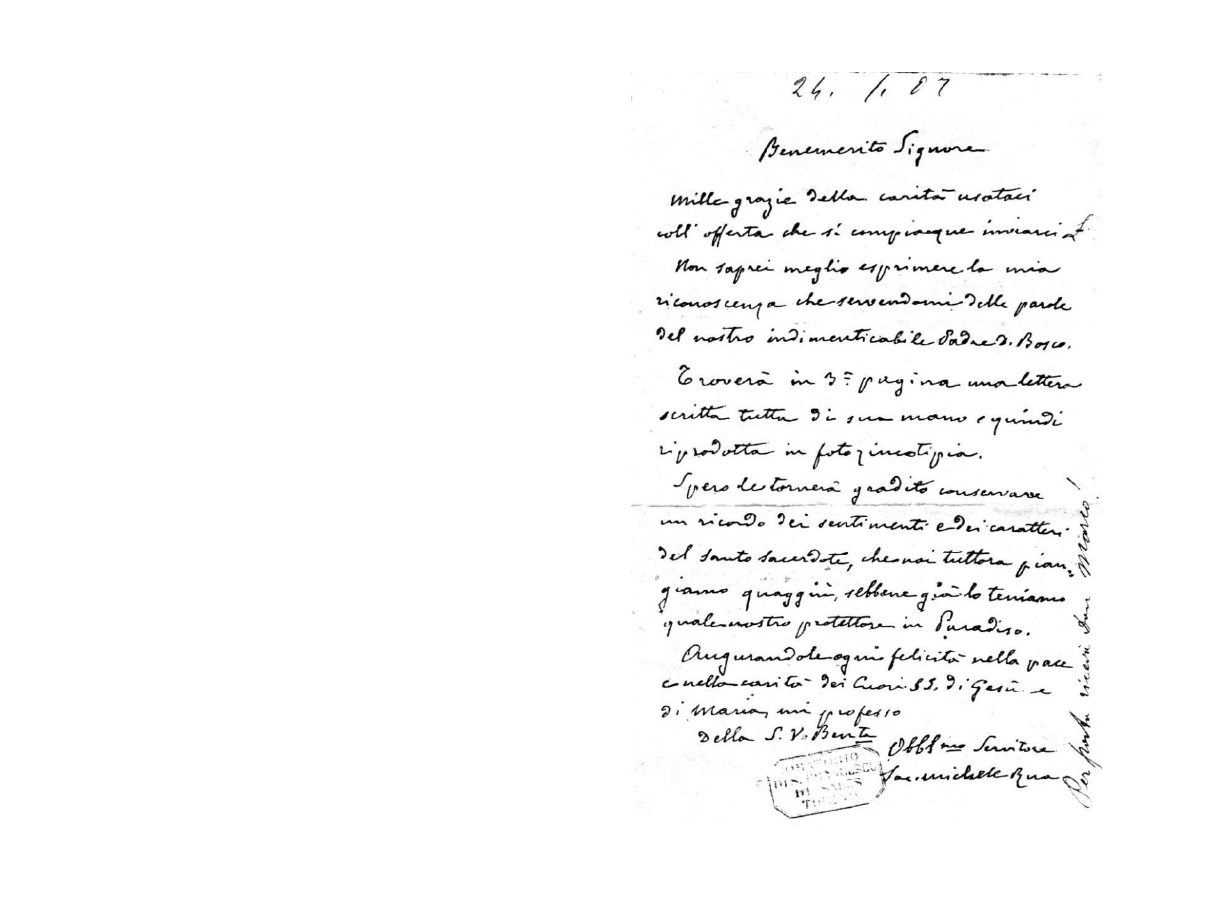 24. 1. 07
Benemerito Signore
Mille grazie della carità usataci
coll' offerta che si compiacque inviarci
Non saprei meglio esprimere la mia
riconoscenza che servendomi delle parole
del nostro indimenticabile Padre D. Bosco.
Troverà in 3ª pagina una lettera
scritta tutta di sua mano e quindi
riprodotta in fotozincotipia.
Spero le tornerà gradito conservare
un ricordo dei sentimenti e dei caratteri
del santo sacerdote, che noi tuttora pian-
giamo quaggiù, sebbene già lo teniamo
quale nostro protettore in Paradiso.
Augurandole ogni felicità nella pace
e nella carità dei Cuori SS. di Gesù e
di Maria, mi professo
Della S. V. Bent.
Obbl.mo Servitore
Sac. Michele Rua
ORATORIO
DI S. FRANCESCO
DI SALES
TORINO
Per posta ricevi Don